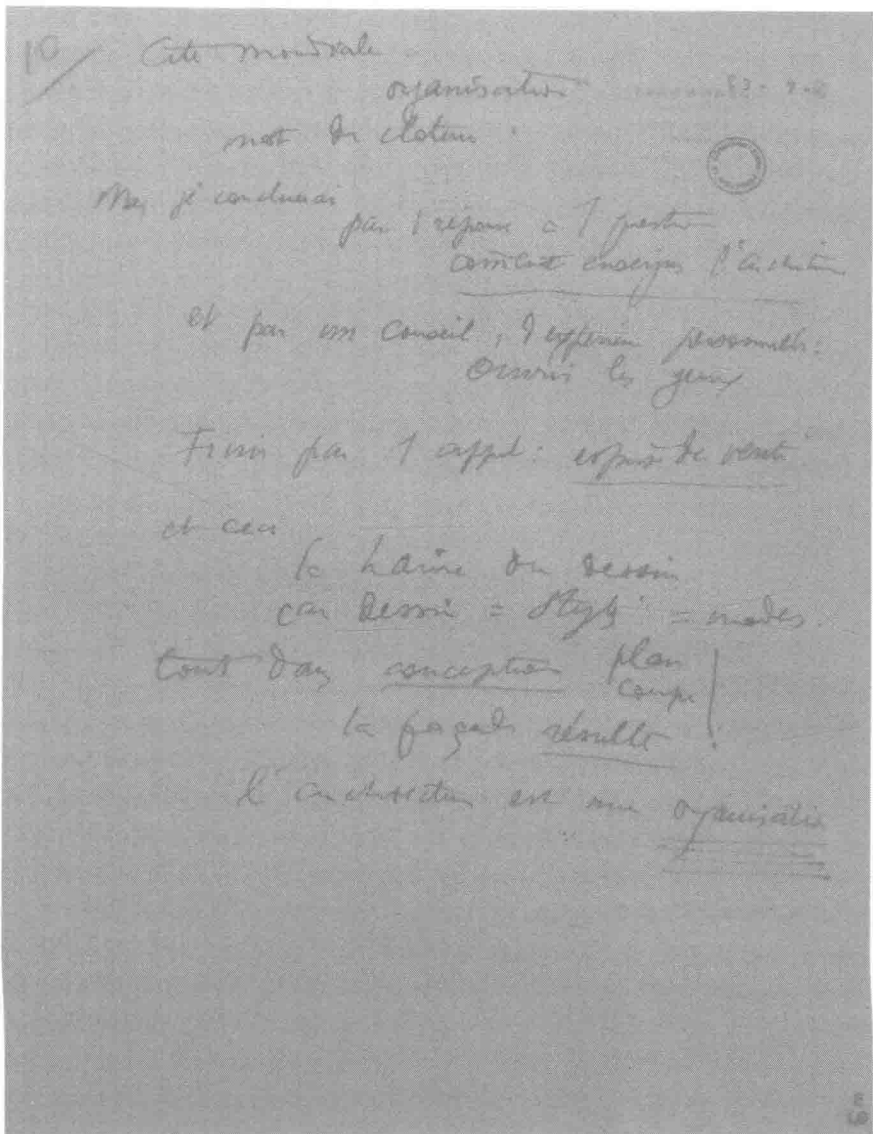 10/ Cité mondiale
organisation
mot de cloture.
Mes je conclurai
par 1 réponse à 1 question
comment enseigner l'architecture
et par un conseil, d'expérience personnelle:
ouvrir les yeux
Finir par 1 appel: esprit de vérité
et ceci
la haine du dessin
car dessin = styles = modes.
tout dans conception plan
coupe
la façade résulte!
l'architecture est une organisation